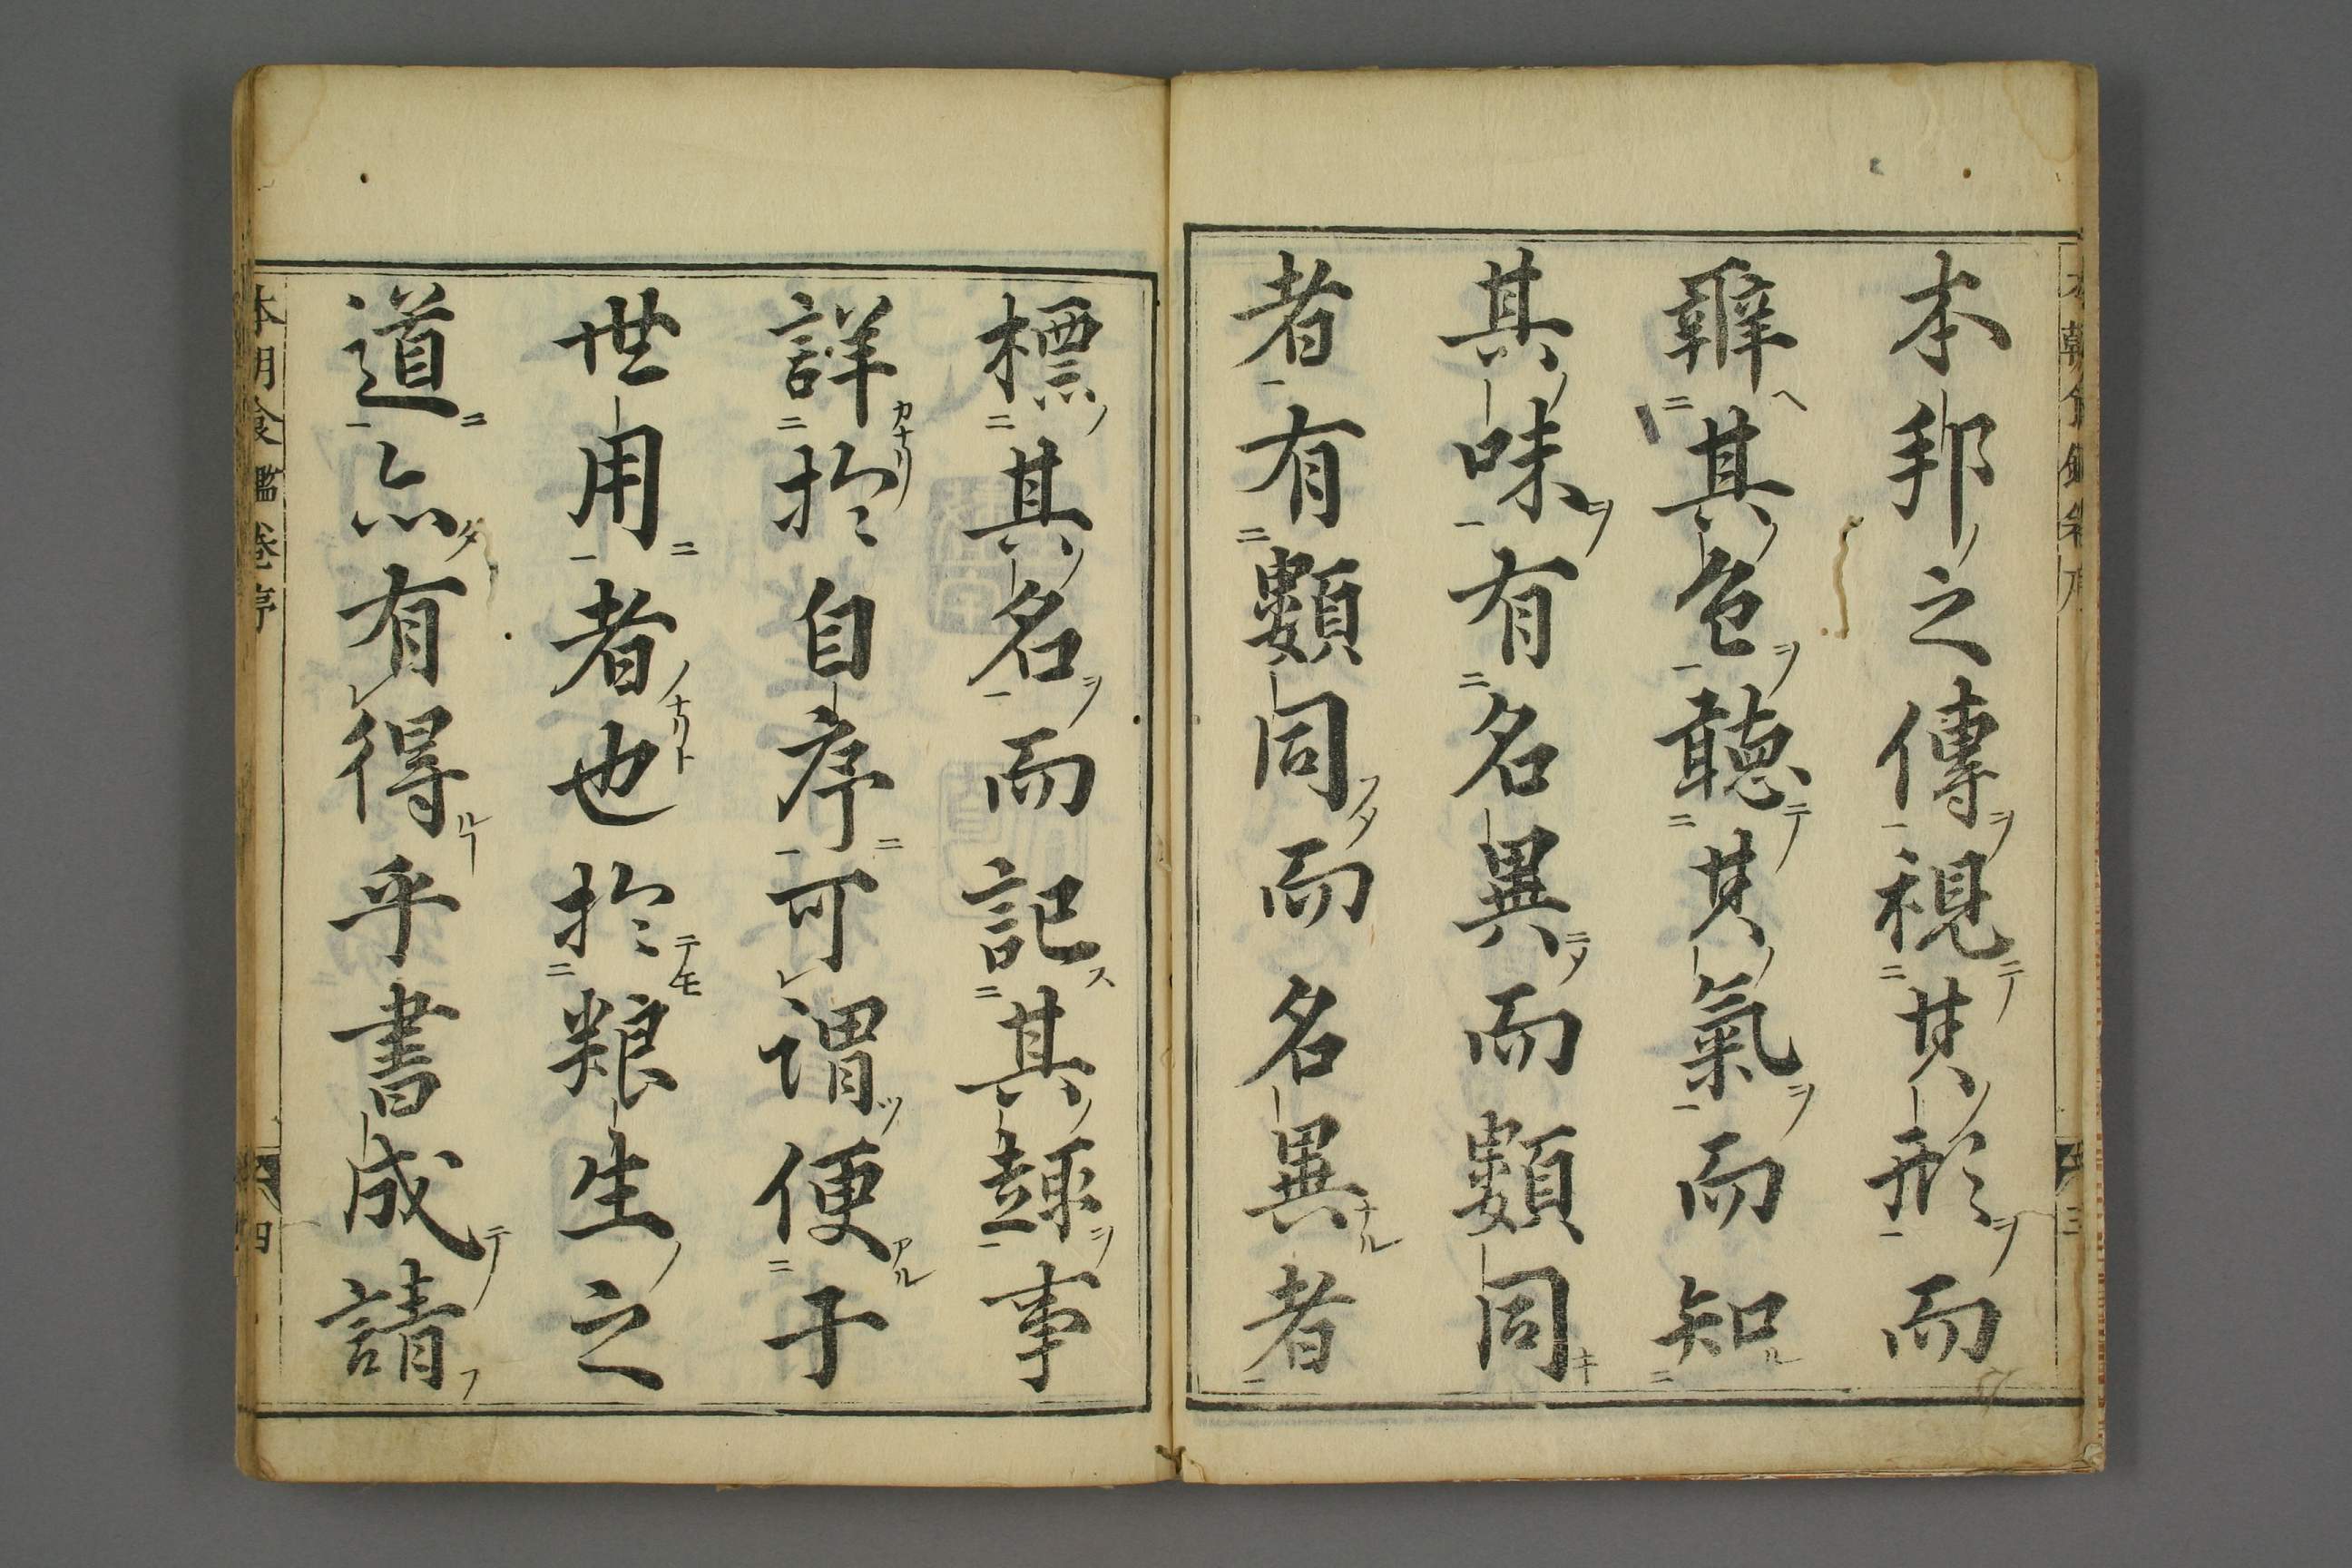 本邦之傳視其形而
辨其色聽其氣而知
其味有名異而類同
者有類同而名異者
標其名而記其趣事
詳於自序可謂便于
世用者也於粮生之
道亦有得乎書成請
本朝食鑑卷序
四